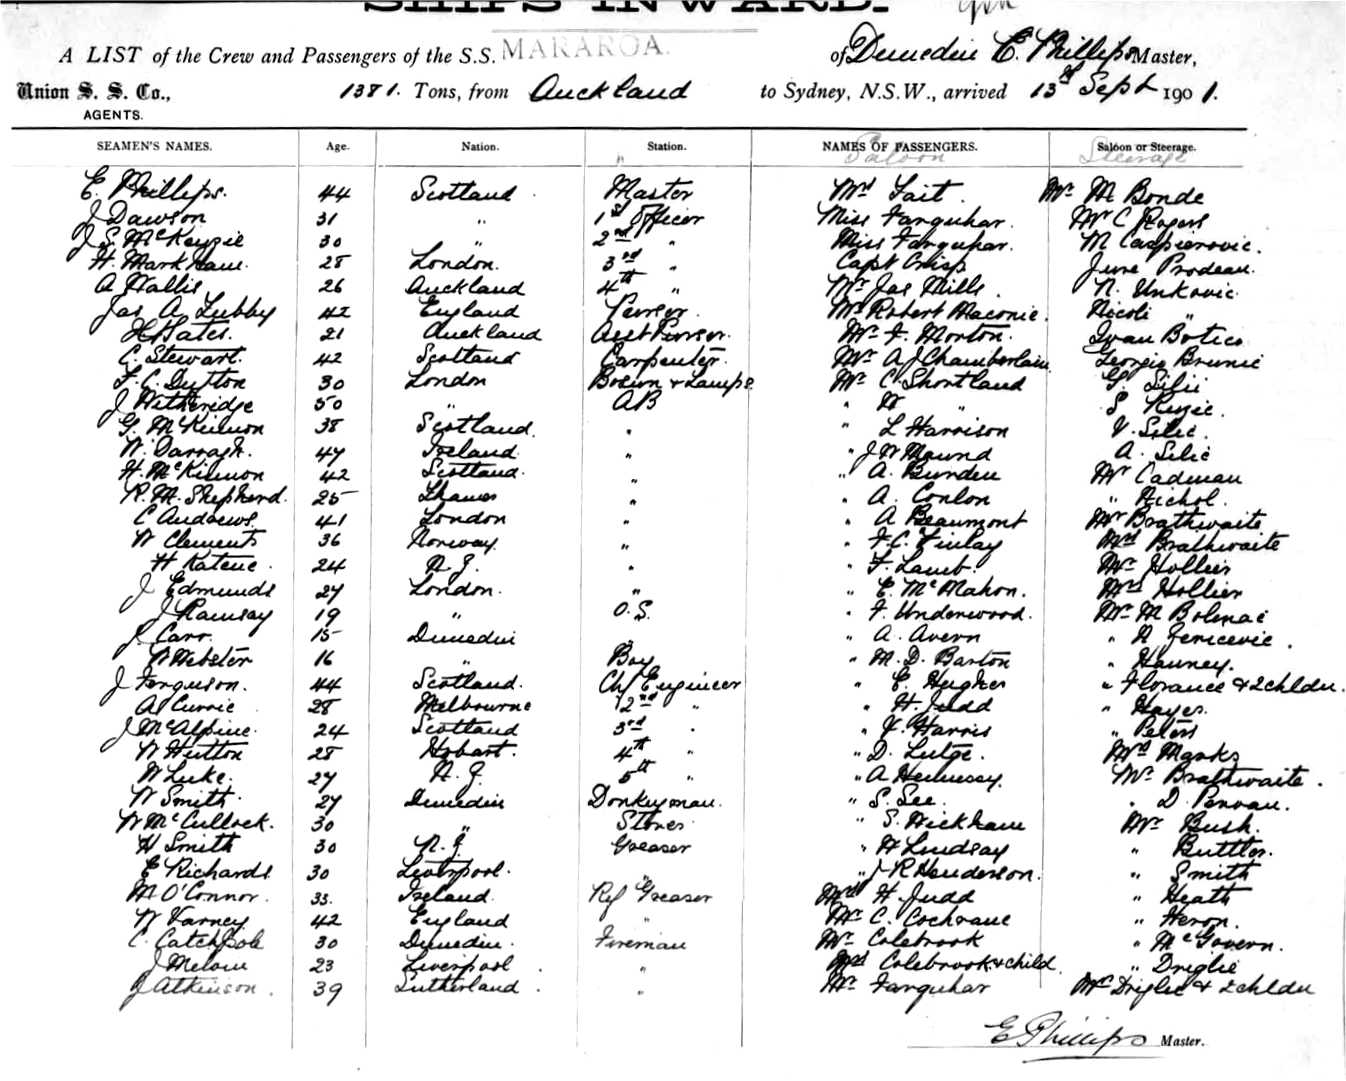 SHIPS INWARD.
A LIST of the Crew and Passengers of the S.S. MARAROA. of Dunedin E. Phillips Master,
Union S. S. Co., 1381. Tons, from Auckland to Sydney, N.S.W., arrived 13th Sept 1901.
AGENTS.
SEAMEN'S NAMES. Age. Nation. Station. NAMES OF PASSENGERS. Saloon or Steerage.
Saloon Steerage
E. Phillips. 44 Scotland Master Mrs Tait. Mr M Bonde
J Dawson 31 " 1st Officer Miss Farquhar. Mr C Rogers
J. S. McKenzie 30 " 2nd " Miss Farquhar. M Caspierovic.
H. Markham. 28 London. 3rd " Capt Crisp June Prodeau.
A Wallis 26 Auckland 4th " Mr Jas Mills. N. Unkovic.
Jas A Lubby 42 England Purser. Mr Robert Maconie. Nicoli "
H Bates. 21 Auckland Asst Purser. Mr F. Morton. Ivan Botica
C. Stewart. 42 Scotland Carpenter. Mr A J Chamberlain Georgie Brunie
F. C. Dutton 30 London Bosun & Lamps Mr C. Shortland G. Lilii
J Witheridge 50 " AB " W " S
G. McKinnon 38 Scotland. " " L Harrison V. Lilic.
W. Darragh. 47 Ireland. " " J W Maund A. Lilic
H. McKinnon 42 Scotland. " " A. Burden Mr Cadman
R. M. Shepherd. 25 Thames " " A. Conlon " Nichol.
C Andrews. 41 London " " A Beaumont Mr Brathwaite
W Clements 36 Norway. " " F. C. Finlay Mrs Brathwaite
H Katene. 24 N. Z. " " F. Lamb. Mr Hollier
J Edmunds 27 London. " " E. McMahon. Mrs Hollier
J Ramsay 19 " O. S. " F. Underwood. Mr M Bolenac
J Carr. 15 Dunedin " " A. Avern " A Jenicevic.
W Webster 16 " Boy " M. D. Barton " Hanney.
J Ferguson. 44 Scotland. Chf Engineer " E. Hughes " Florance & 2 chldn.
A Currie 28 Melbourne 2nd " " H. Judd " Hayes.
J McAlpine. 24 Scotland 3rd " " J. Harris " Peters
W Hutton 28 Hobart. 4th " " D. Lutge. Mrs Manks
W Luke. 27 N. Z. 5th " " A Hennessy. Mr Brathwaite.
W Smith. 27 Dunedin Donkeyman. " S. Lee. " D.
W McCullock. 30 " Stores " S. Wickham Mr Bush.
H Smith 30 N. Z Greaser " W Lindsay " Buttler.
E Richards 30 Liverpool. " " J R Henderson. " Smith
M O'Connor. 33. Ireland. Ref Greaser Mrs H. Judd " Heath
W Varney 42 England " Mr C. Cochrane " Heron.
C. Catchpole 30 Dunedin. Fireman Mr Colebrook " McGovern.
J Melow 23 Liverpool. " Mrs Colebrook & child. " Driglie
J Atkinson. 39 Sutherland. " Mr Farquhar Mrs Driglie & 2 chldn
E Phillips Master.